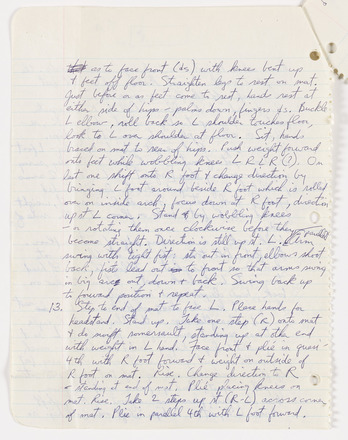 as to face front (ds) with knees bent up
+ feet off floor. Straighten legs to rest on mat.
Just before or as feet come to rest, hands rest at
either side of hips - palms down, fingers ds. Buckle
L elbow, roll back so L shoulder touches floor,
look to L over shoulder at floor. Sit, hands
braced on mat to rear of hips. Push weight forward
onto feet while wobbling knees L R L R (?). On
last one shift onto R foot + change direction by
bringing L foot around beside R foot which is rolled
over on inside arch, focus down at R foot, direction
up st L corner. Stand up by wobbling knees
- or rotating them once clockwise before they
become straight. Direction is still up st. L. Arm
swing with tight fist: sts out in front, elbows shoot
back, fists lead out to front so that arms swing
in big arc out, down + back. Swing back up
to forward position + repeat.
13. Step to end of mat to face L. Place hands for
headstand. Stand up. Take one step (R) onto mat
+ do somersault, standing up at other end
with weight in L hand. Face front + plié in quasi-
4th with R foot forward + weight on outside of
R foot on mat. Rise. Change direction to R
- standing at end of mat. Plié placing knees on
mat. Rise. Take 2 steps up st (R-L) across corner
of mat. Plié in parallel 4th with L foot forward.